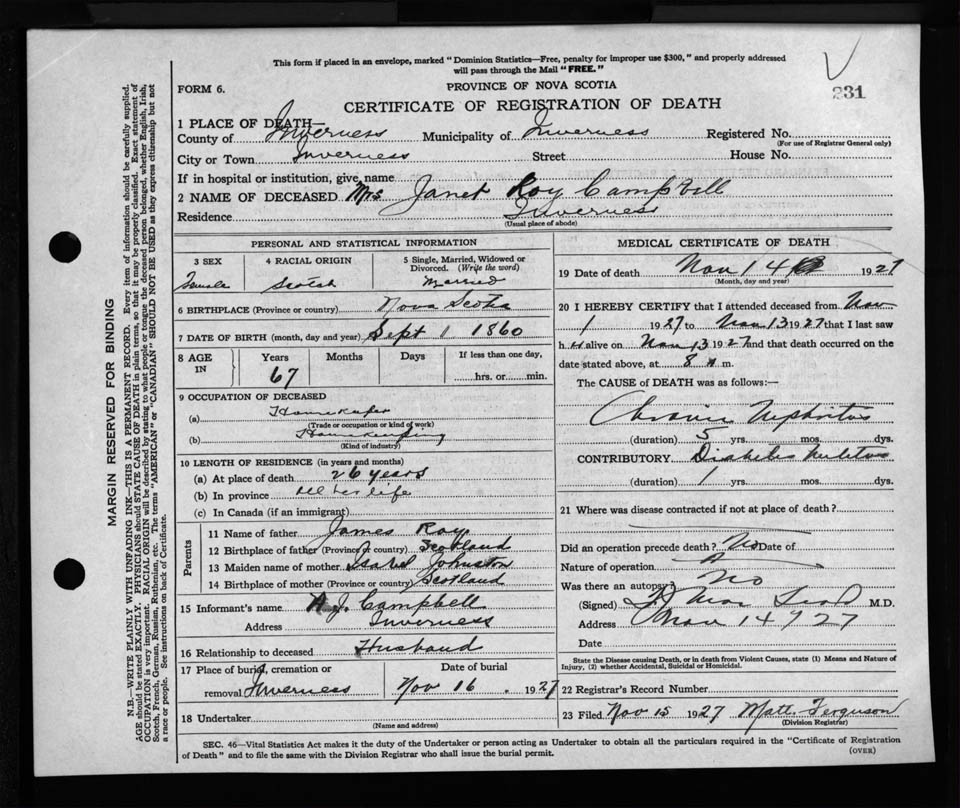 This form if placed in an envelope, marked "Dominion Statistics—Free, penalty for improper use $300," and properly addressed
will pass through the Mail "FREE."
FORM 6.
PROVINCE OF NOVA SCOTIA
231
CERTIFICATE OF REGISTRATION OF DEATH
1 PLACE OF DEATH—
County of Inverness Municipality of Inverness Registered No.
(For use of Registrar General only)
City or Town Inverness Street House No.
If in hospital or institution, give name
2 NAME OF DECEASED Mrs Janet Roy Campbell
Residence Inverness
(Usual place of abode)
PERSONAL AND STATISTICAL INFORMATION
3 SEX 4 RACIAL ORIGIN 5 Single, Married, Widowed or
Divorced. (Write the word)
Female Scotch Married
6 BIRTHPLACE (Province or country) Nova Scotia
7 DATE OF BIRTH (month, day and year) Sept 1 1860
8 AGE IN Years Months Days If less than one day,
67 hrs. or min.
9 OCCUPATION OF DECEASED
(a) Housekeeper
(Trade or occupation or kind of work)
(b) Housekeeping
(Kind of industry)
10 LENGTH OF RESIDENCE (in years and months)
(a) At place of death 26 years
(b) In province all her life
(c) In Canada (if an immigrant)
Parents
11 Name of father James Roy
12 Birthplace of father (Province or country) Scotland
13 Maiden name of mother Isabel Johnston
14 Birthplace of mother (Province or country) Scotland
15 Informant's name A. J. Campbell
Address Inverness
16 Relationship to deceased Husband
17 Place of burial, cremation or Date of burial
removal Inverness Nov 16, 1927
18 Undertaker
(Name and address)
MEDICAL CERTIFICATE OF DEATH
19 Date of death Nov 14 1927
(Month, day and year)
20 I HEREBY CERTIFY that I attended deceased from Nov
1 1927 to Nov 13 1927 that I last saw
h er alive on Nov 13 1927 and that death occurred on the
date stated above, at 8 A m.
The CAUSE of DEATH was as follows:—
Chronic Nephritis
(duration) 5 yrs. mos. dys.
CONTRIBUTORY Diabetes Mellitus
(duration) 1 yrs. mos. dys.
21 Where was disease contracted if not at place of death?
Did an operation precede death? No Date of
Nature of operation
Was there an autopsy? No
(Signed) M.D.
Address Nov 14/27
Date
State the Disease causing Death, or in death from Violent Causes, state (1) Means and Nature of
Injury, (2) whether Accidental, Suicidal or Homicidal.
22 Registrar's Record Number
23 Filed Nov 15 1927 Matt. Ferguson
(Division Registrar)
SEC. 46—Vital Statistics Act makes it the duty of the Undertaker or person acting as Undertaker to obtain all the particulars required in the "Certificate of Registration
of Death" and to file the same with the Division Registrar who shall issue the burial permit.
(OVER)
MARGIN RESERVED FOR BINDING
N.B.—WRITE PLAINLY WITH UNFADING INK—THIS IS A PERMANENT RECORD. Every item of information should be carefully supplied.
AGE should be stated EXACTLY. PHYSICIANS should STATE CAUSE OF DEATH in plain terms, so that it may be properly classified. Exact statement of
OCCUPATION is very important. RACIAL ORIGIN will be described by stating to what people or tongue the deceased person belonged, whether English, Irish,
Scotch, French, German, Russian, Ruthenian, etc. The terms "AMERICAN" or "CANADIAN" SHOULD NOT BE USED as they express citizenship but not
a race or people. See instructions on back of Certificate.